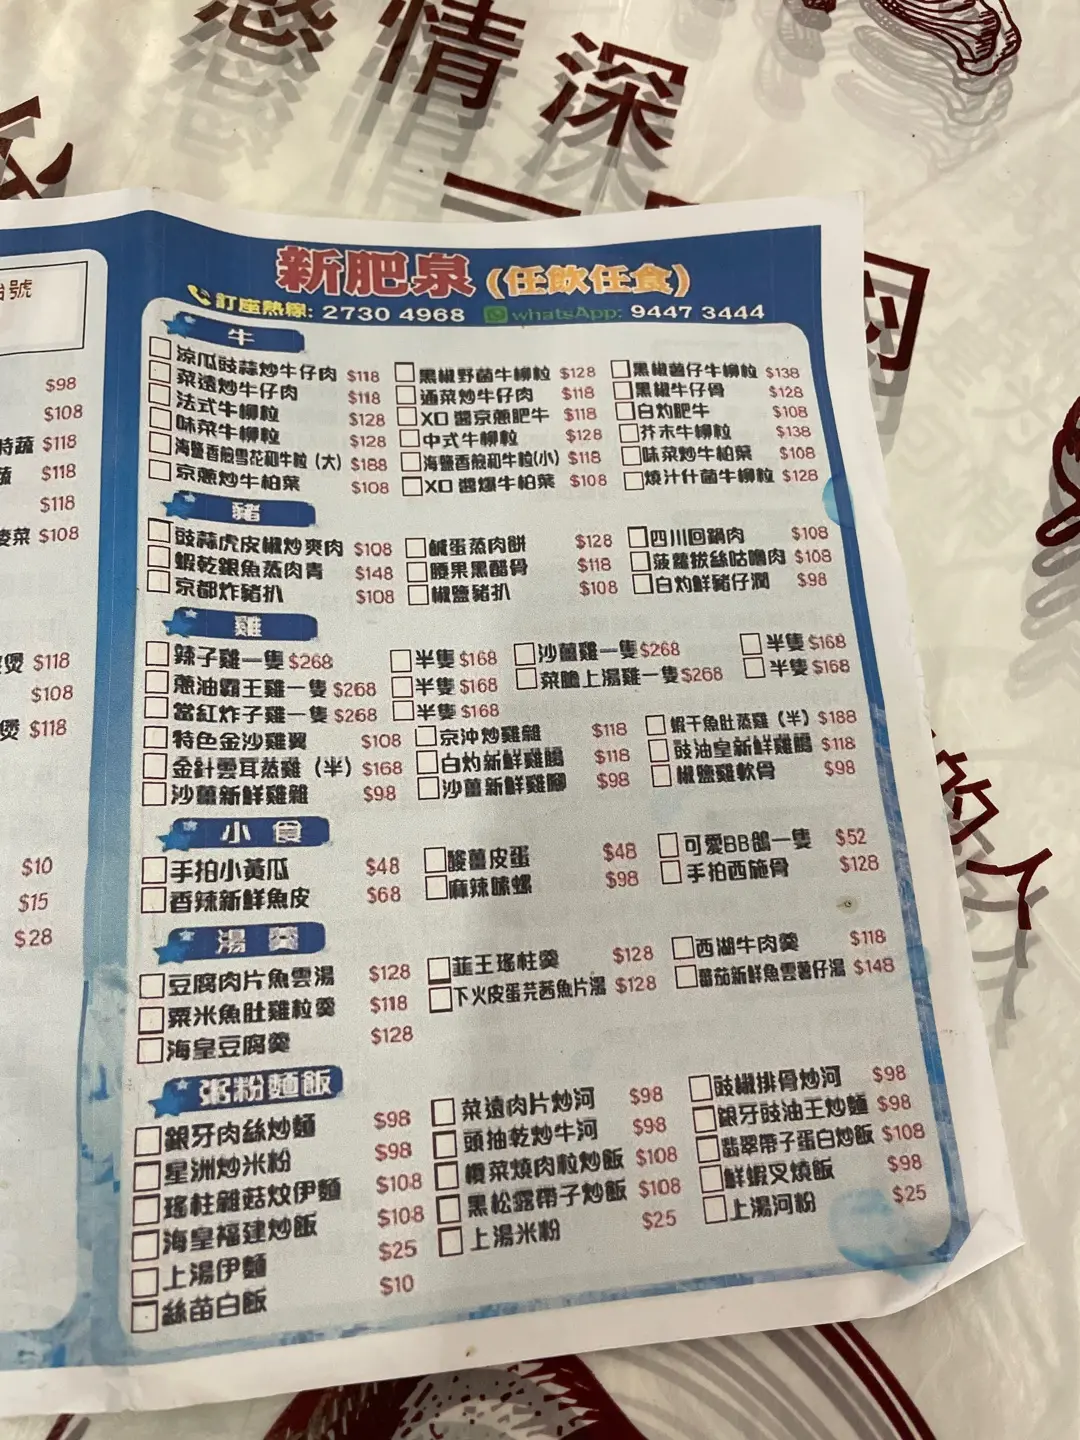 感情深
一
悶
的人
新肥泉(任飲任食)
訂座熱線: 2730 4968 whatsApp: 9447 3444
牛
涼瓜豉蒜炒牛仔肉 $118 黑椒野菌牛柳粒 $128 黑椒薯仔牛柳粒 $138
菜遠炒牛仔肉 $118 通菜炒牛仔肉 $118 黑椒牛仔骨 $128
法式牛柳粒 $128 XO醬京蔥肥牛 $118 白灼肥牛 $108
味菜牛柳粒 $128 中式牛柳粒 $128 芥末牛柳粒 $138
海鹽香煎雪花和牛粒(大) $188 海鹽香煎和牛粒(小) $118 味菜炒牛柏葉 $108
京蔥炒牛柏葉 $108 XO醬爆牛柏葉 $108 燒汁什菌牛柳粒 $128
豬
豉蒜虎皮椒炒爽肉 $108 鹹蛋蒸肉餅 $128 四川回鍋肉 $108
蝦乾銀魚蒸肉青 $148 腰果黑醋骨 $118 菠蘿拔絲咕嚕肉 $108
京都炸豬扒 $108 椒鹽豬扒 $108 白灼鮮豬仔潤 $98
雞
辣子雞一隻 $268 半隻 $168 沙薑雞一隻 $268 半隻 $168
蔥油霸王雞一隻 $268 半隻 $168 菜膽上湯雞一隻 $268 半隻 $168
當紅炸子雞一隻 $268 半隻 $168
特色金沙雞翼 $108 京沖炒雞雜 $118 蝦干魚肚蒸雞(半) $188
金針雲耳蒸雞(半) $168 白灼新鮮雞腸 $118 豉油皇新鮮雞腸 $118
沙薑新鮮雞雜 $98 沙薑新鮮雞腳 $98 椒鹽雞軟骨 $98
小食
手拍小黃瓜 $48 酸薑皮蛋 $48 可愛BB鴿一隻 $52
香辣新鮮魚皮 $68 麻辣味螺 $98 手拍西施骨 $128
湯羹
豆腐肉片魚雲湯 $128 韮王瑤柱羹 $128 西湖牛肉羹 $118
粟米魚肚雞粒羹 $118 下火皮蛋芫茜魚片湯 $128 蕃茄新鮮魚雲薯仔湯 $148
海皇豆腐羹 $128
粥粉麵飯
銀牙肉絲炒麵 $98 菜遠肉片炒河 $98 豉椒排骨炒河 $98
星洲炒米粉 $98 頭抽乾炒牛河 $98 銀牙豉油王炒麵 $98
瑤柱雜菇炆伊麵 $108 欖菜燒肉粒炒飯 $108 翡翠帶子蛋白炒飯 $108
海皇福建炒飯 $108 黑松露帶子炒飯 $108 鮮蝦叉燒飯 $98
上湯伊麵 $25 上湯米粉 $25 上湯河粉 $25
絲苗白飯 $10
號
$98
$108
時蔬 $118
蔬 $118
$118
菜 $108
煲 $118
$108
煲 $118
$10
$15
$28